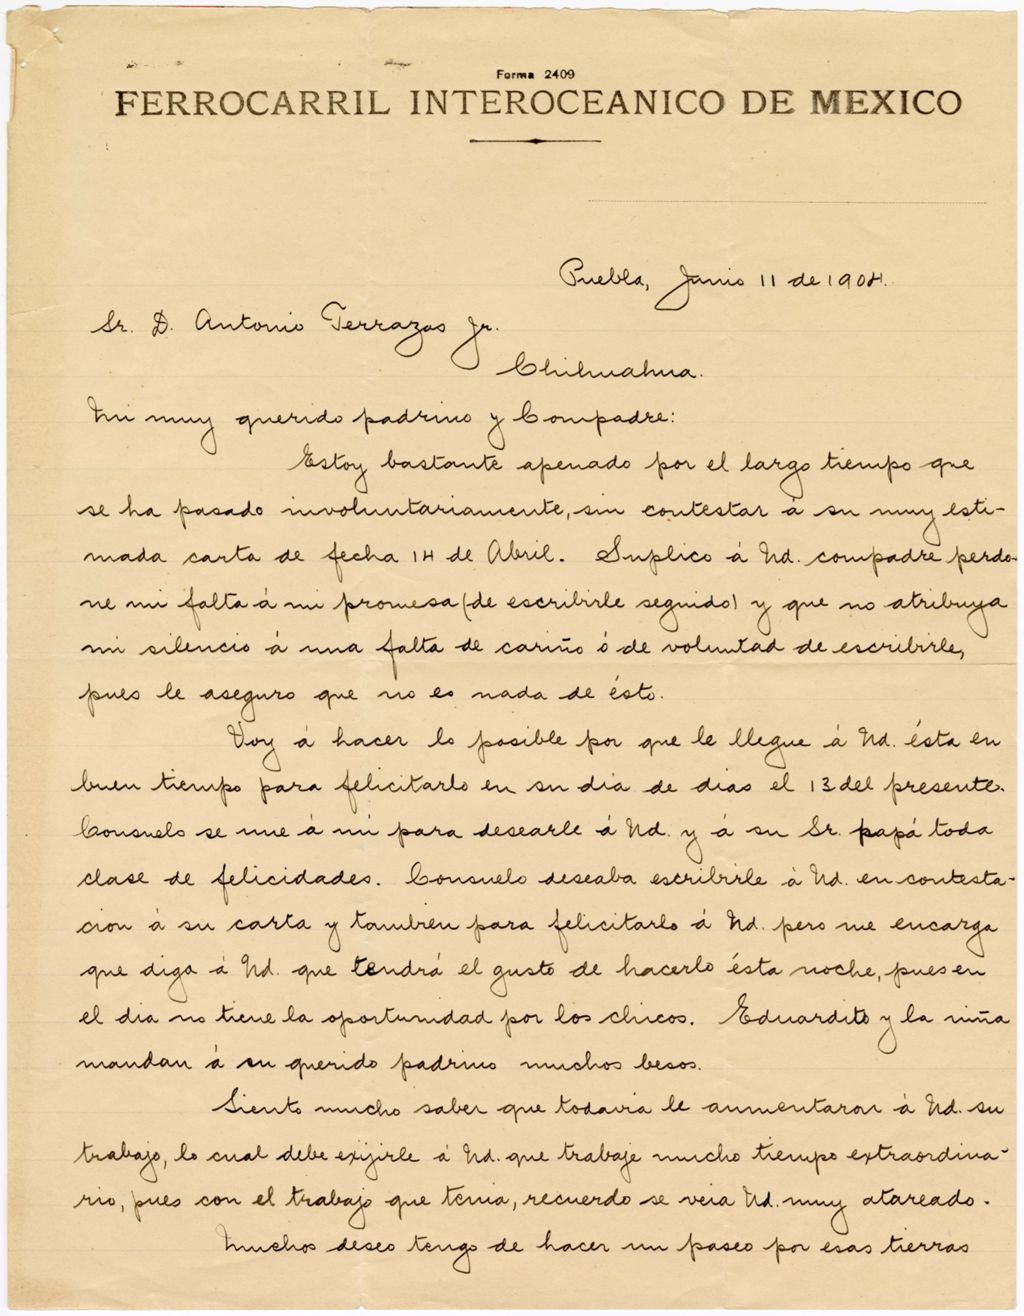 Forma 2409
FERROCARRIL INTEROCEANICO DE MEXICO
Puebla, Junio 11 de 1904.
Sr. D. Antonio Terrazas Jr.
Chihuahua.
Mi muy querido padrino y Compadre:
Estoy bastante apenado por el largo tiempo que
se ha pasado involuntariamente, sin contestar á su muy esti-
mada carta de fecha 14 de Abril. Suplico á Ud. compadre perdo-
ne mi falta á mi promesa (de escribirle seguido) y que no atribuya
mi silencio á una falta de cariño ó de voluntad de escribirle,
pues le aseguro que no es nada de ésto.
Voy á hacer lo posible por que le llegue á Ud. ésta en
buen tiempo para felicitarlo en su dia de dias el 13 del presente.
Consuelo se une á mi para desearle á Ud. y á su Sr. papá toda
clase de felicidades. Consuelo deseaba escribirle á Ud. en contesta-
cion á su carta y tambien para felicitarlo á Ud. pero me encarga
que diga á Ud. que tendrá el gusto de hacerlo ésta noche, pues en
el dia no tiene la oportunidad por los chicos. Eduardito y la niña
mandan á su querido padrino muchos besos.
Siento mucho saber que todavia le aumentaron á Ud. su
trabajo, lo cual debe exijirle á Ud. que trabaje mucho tiempo extraordina-
rio, pues con el trabajo que tenia, recuerdo se veia Ud. muy atareado.
Muchos deseo tengo de hacer un paseo por esas tierras